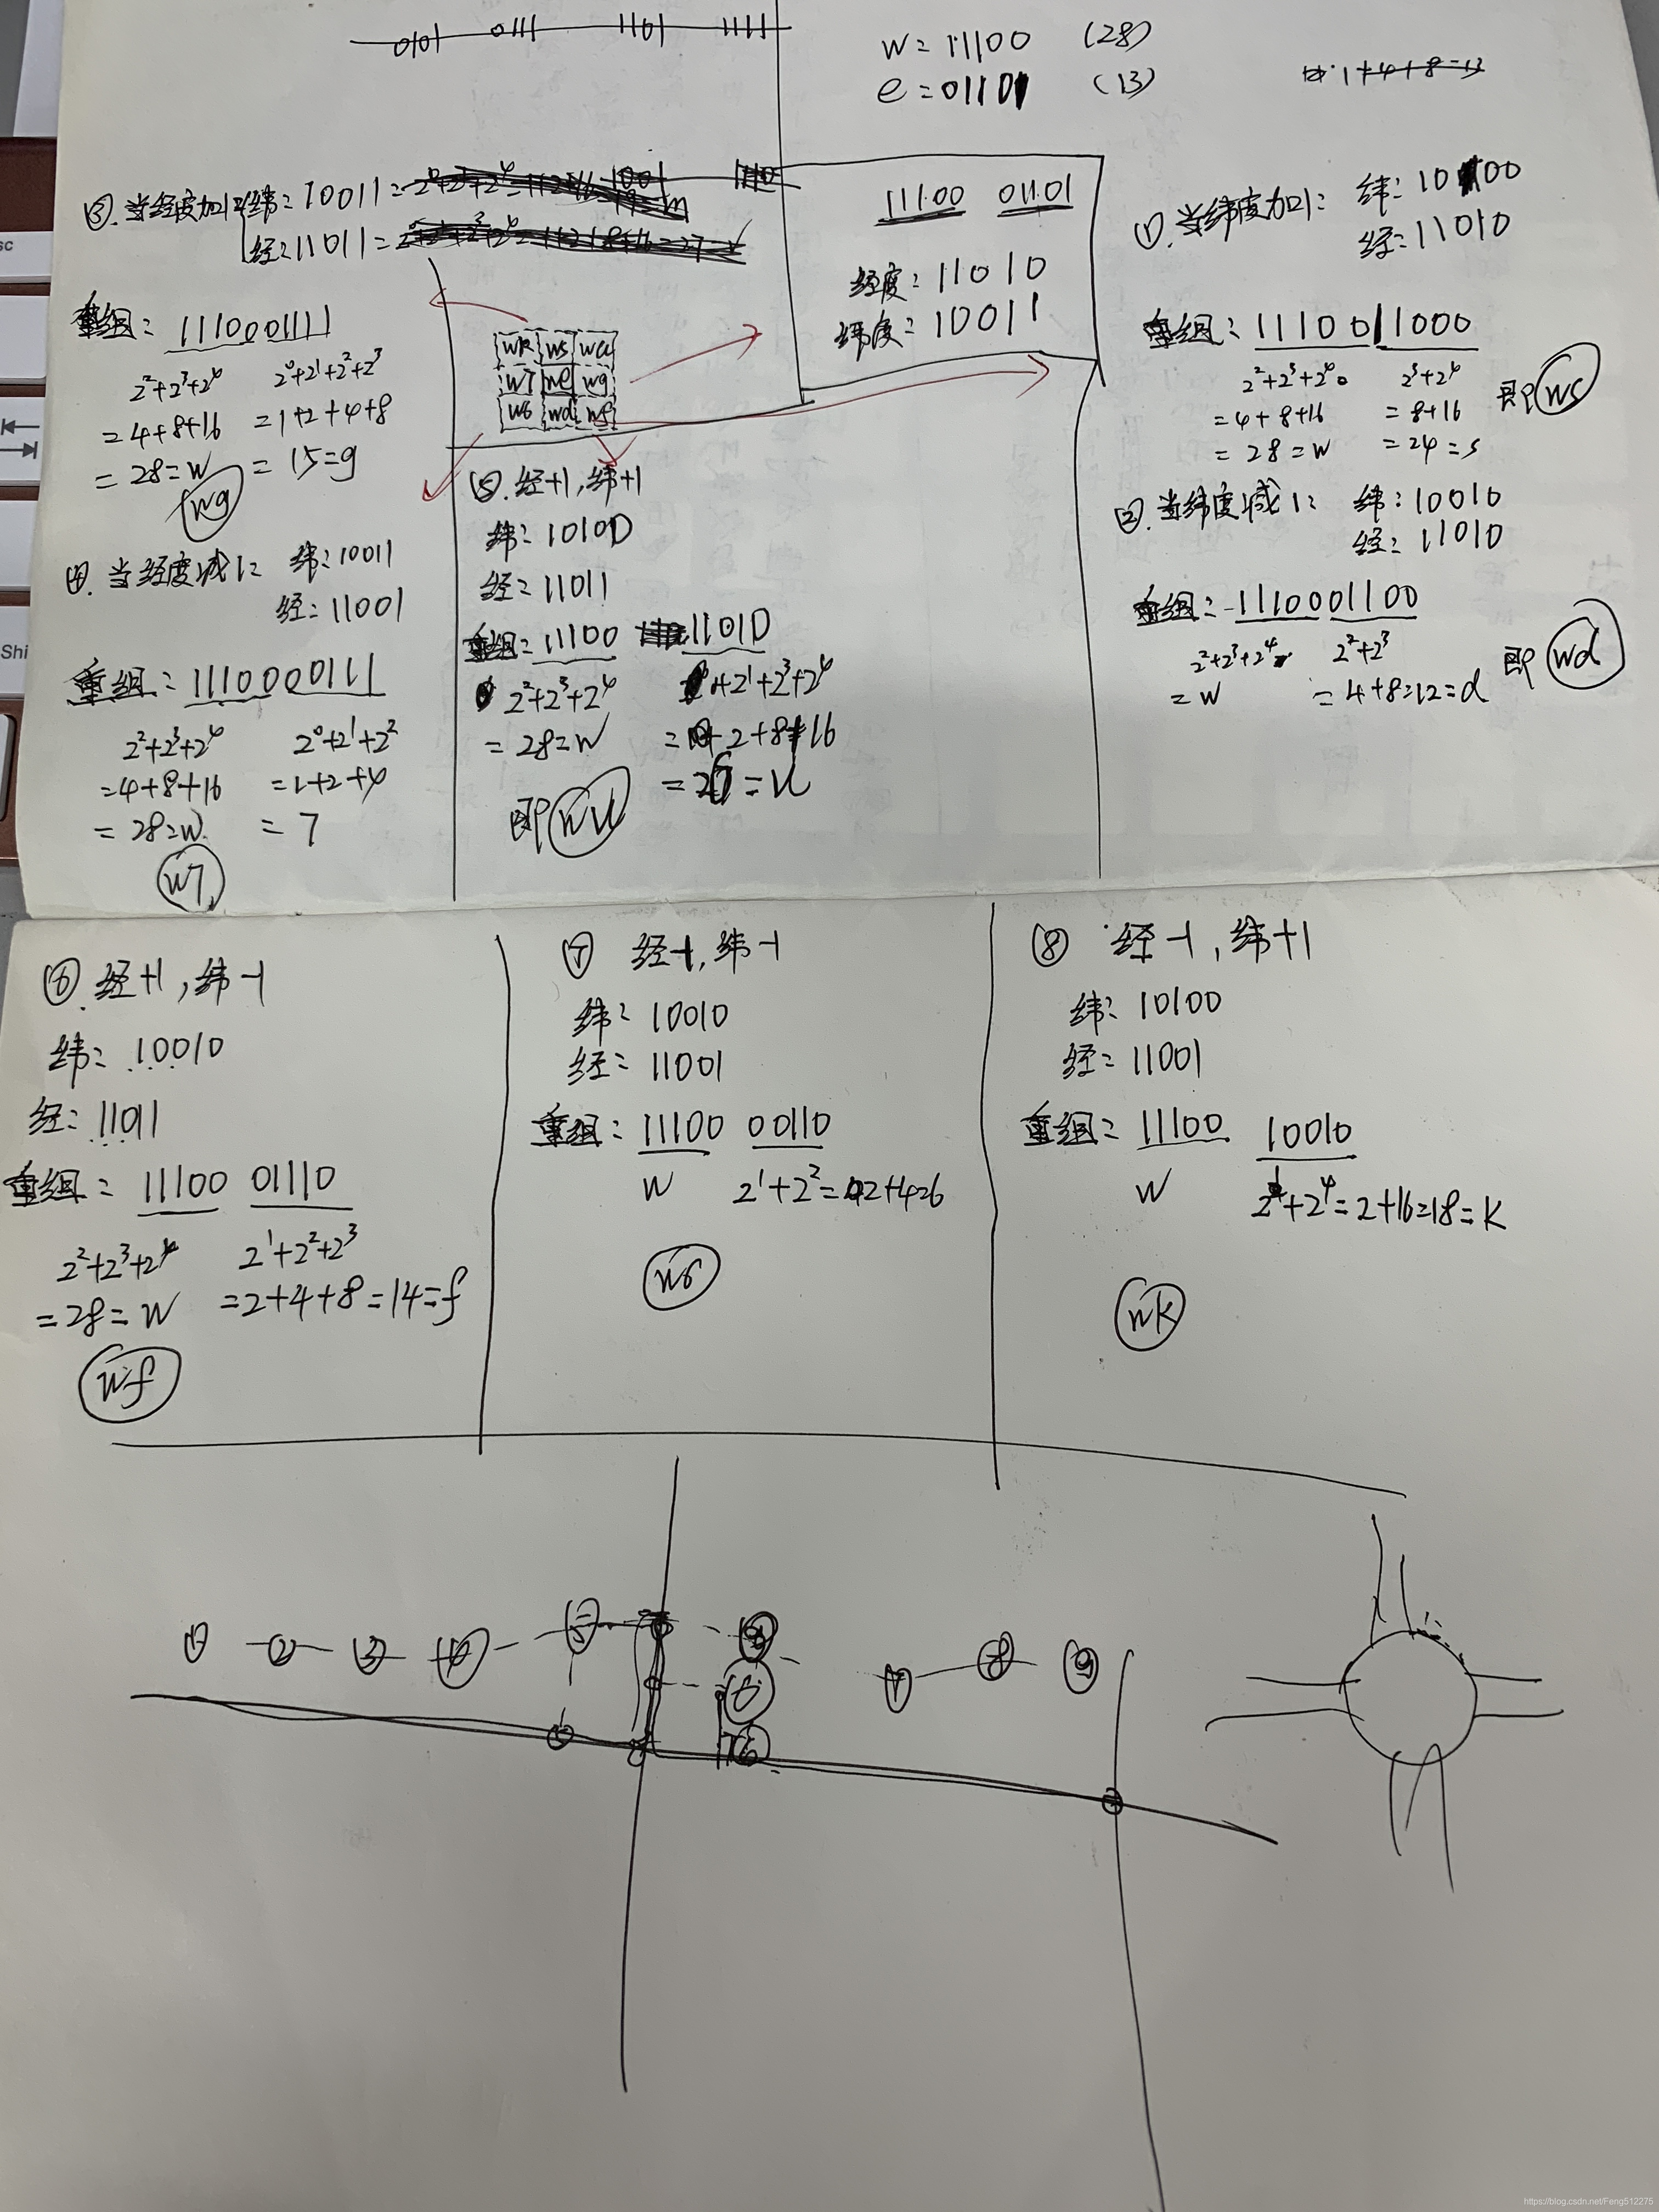 0101 0111 1101 1111
w = 11100 (28)
e = 01101 (13)
1+4+8=13
③. 当经度加1: 纬: 10011 =
经: 11011 =
重组: 1110001111
2²+2³+2⁴ 2⁰+2¹+2²+2³
= 4+8+16 = 1+2+4+8
= 28 = w = 15 = g
wg
④. 当经度减1: 纬: 10011
经: 11001
重组: 1110000111
2²+2³+2⁴ 2⁰+2¹+2²
= 4+8+16 = 1+2+4
= 28 = w = 7
w7
wk ws wu
w7 we wg
w6 wd wf
⑤. 经+1, 纬+1
纬: 10100
经: 11011
重组: 11100 11010
2²+2³+2⁴ 2¹+2³+2⁴
= 28 = w = 2+8+16
= 26 = u
即 wu
11100 01101
经度: 11010
纬度: 10011
①. 当纬度加1: 纬: 10100
经: 11010
重组: 11100 11000
2²+2³+2⁴ 2³+2⁴
= 4+8+16 = 8+16
= 28 = w = 24 = s
即 ws
②. 当纬度减1: 纬: 10010
经: 11010
重组: 1110001100
2²+2³+2⁴ 2²+2³
= w = 4+8=12=d
即 wd
⑥. 经+1, 纬-1
纬: 10010
经: 11011
重组: 11100 01110
2²+2³+2⁴ 2¹+2²+2³
= 28 = w = 2+4+8 = 14 = f
wf
⑦ 经-1, 纬-1
纬: 10010
经: 11001
重组: 11100 00110
w 2¹+2² = 2+4=6
w6
⑧ 经-1, 纬+1
纬: 10100
经: 11001
重组: 11100 10010
w 2¹+2⁴ = 2+16=18=k
wk
① ② ③ ④ ⑤ ⑥ ⑦ ⑧ ⑨
https://blog.csdn.net/Feng512275